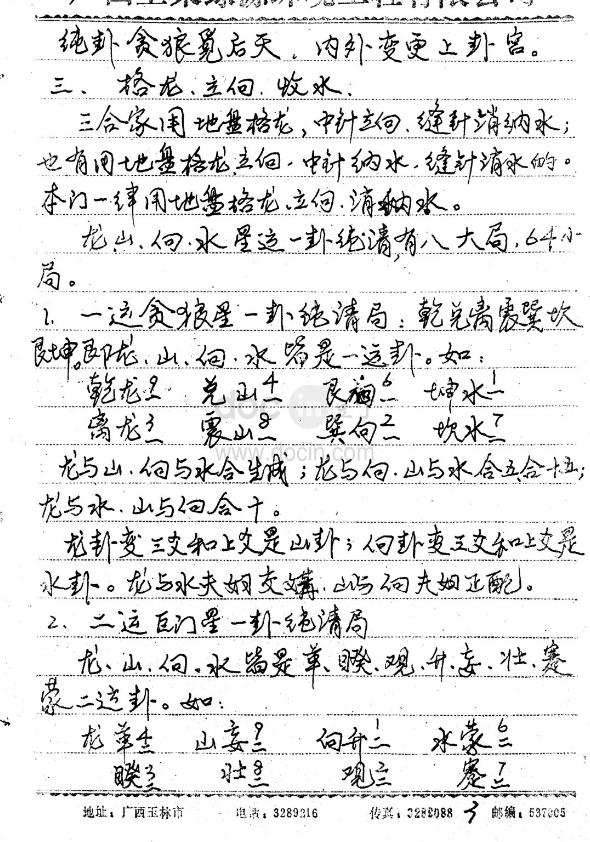 纯卦贪狼觅后天，内外变更上卦宫。
三、格龙、立向、收水：
三合家用地盘格龙，中针立向、缝针消纳水；
也有用地盘格龙立向、中针纳水、缝针消水的。
本门一律用地盘格龙、立向、消纳水。
龙、山、向、水星运一卦纯清，有八大局，64小
局。
1、一运贪狼星一卦纯清局：乾兑离震巽坎
艮坤。即龙、山、向、水皆是一运卦。如：
乾龙9 兑山4 艮向6 坤水1
离龙3 震山8 巽向2 坎水7
docin
www.docin.com
龙与山、向与水合生成；龙与向、山与水合五、合十五；
龙与水、山与向合十。
龙卦变三爻和上爻是山卦；向卦变三爻和上爻是
水卦。龙与水夫妇交媾，山与向夫妇正配。
2、二运巨门星一卦纯清局
龙、山、向、水皆是革、睽、观、升、妄、壮、蹇
蒙二运卦。如：
龙革4 山妄9 向升1 水蒙6
睽3 壮8 观2 蹇7
地址：广西玉林市 电话：3289216 传真：3282088 3 邮编：537005